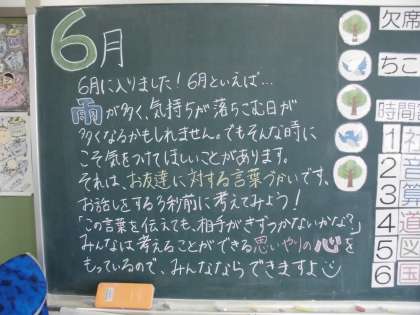 6月
6月に入りました！6月といえば…
雨が多く、気持ちが落ちこむ日が
多くなるかもしれません。でもそんな時に
こそ気をつけてほしいことがあります。
それは、お友達に対する言葉づかいです。
お話しをする3秒前に考えてみよう！
「この言葉を伝えても、相手がきずつかないかな？」
みんなは考えることができる思いやりの心を
もっているので、みんなならできますよ
欠席
ちこ
時間
1 社
2 言
3 算
4 道
5 図
6 国